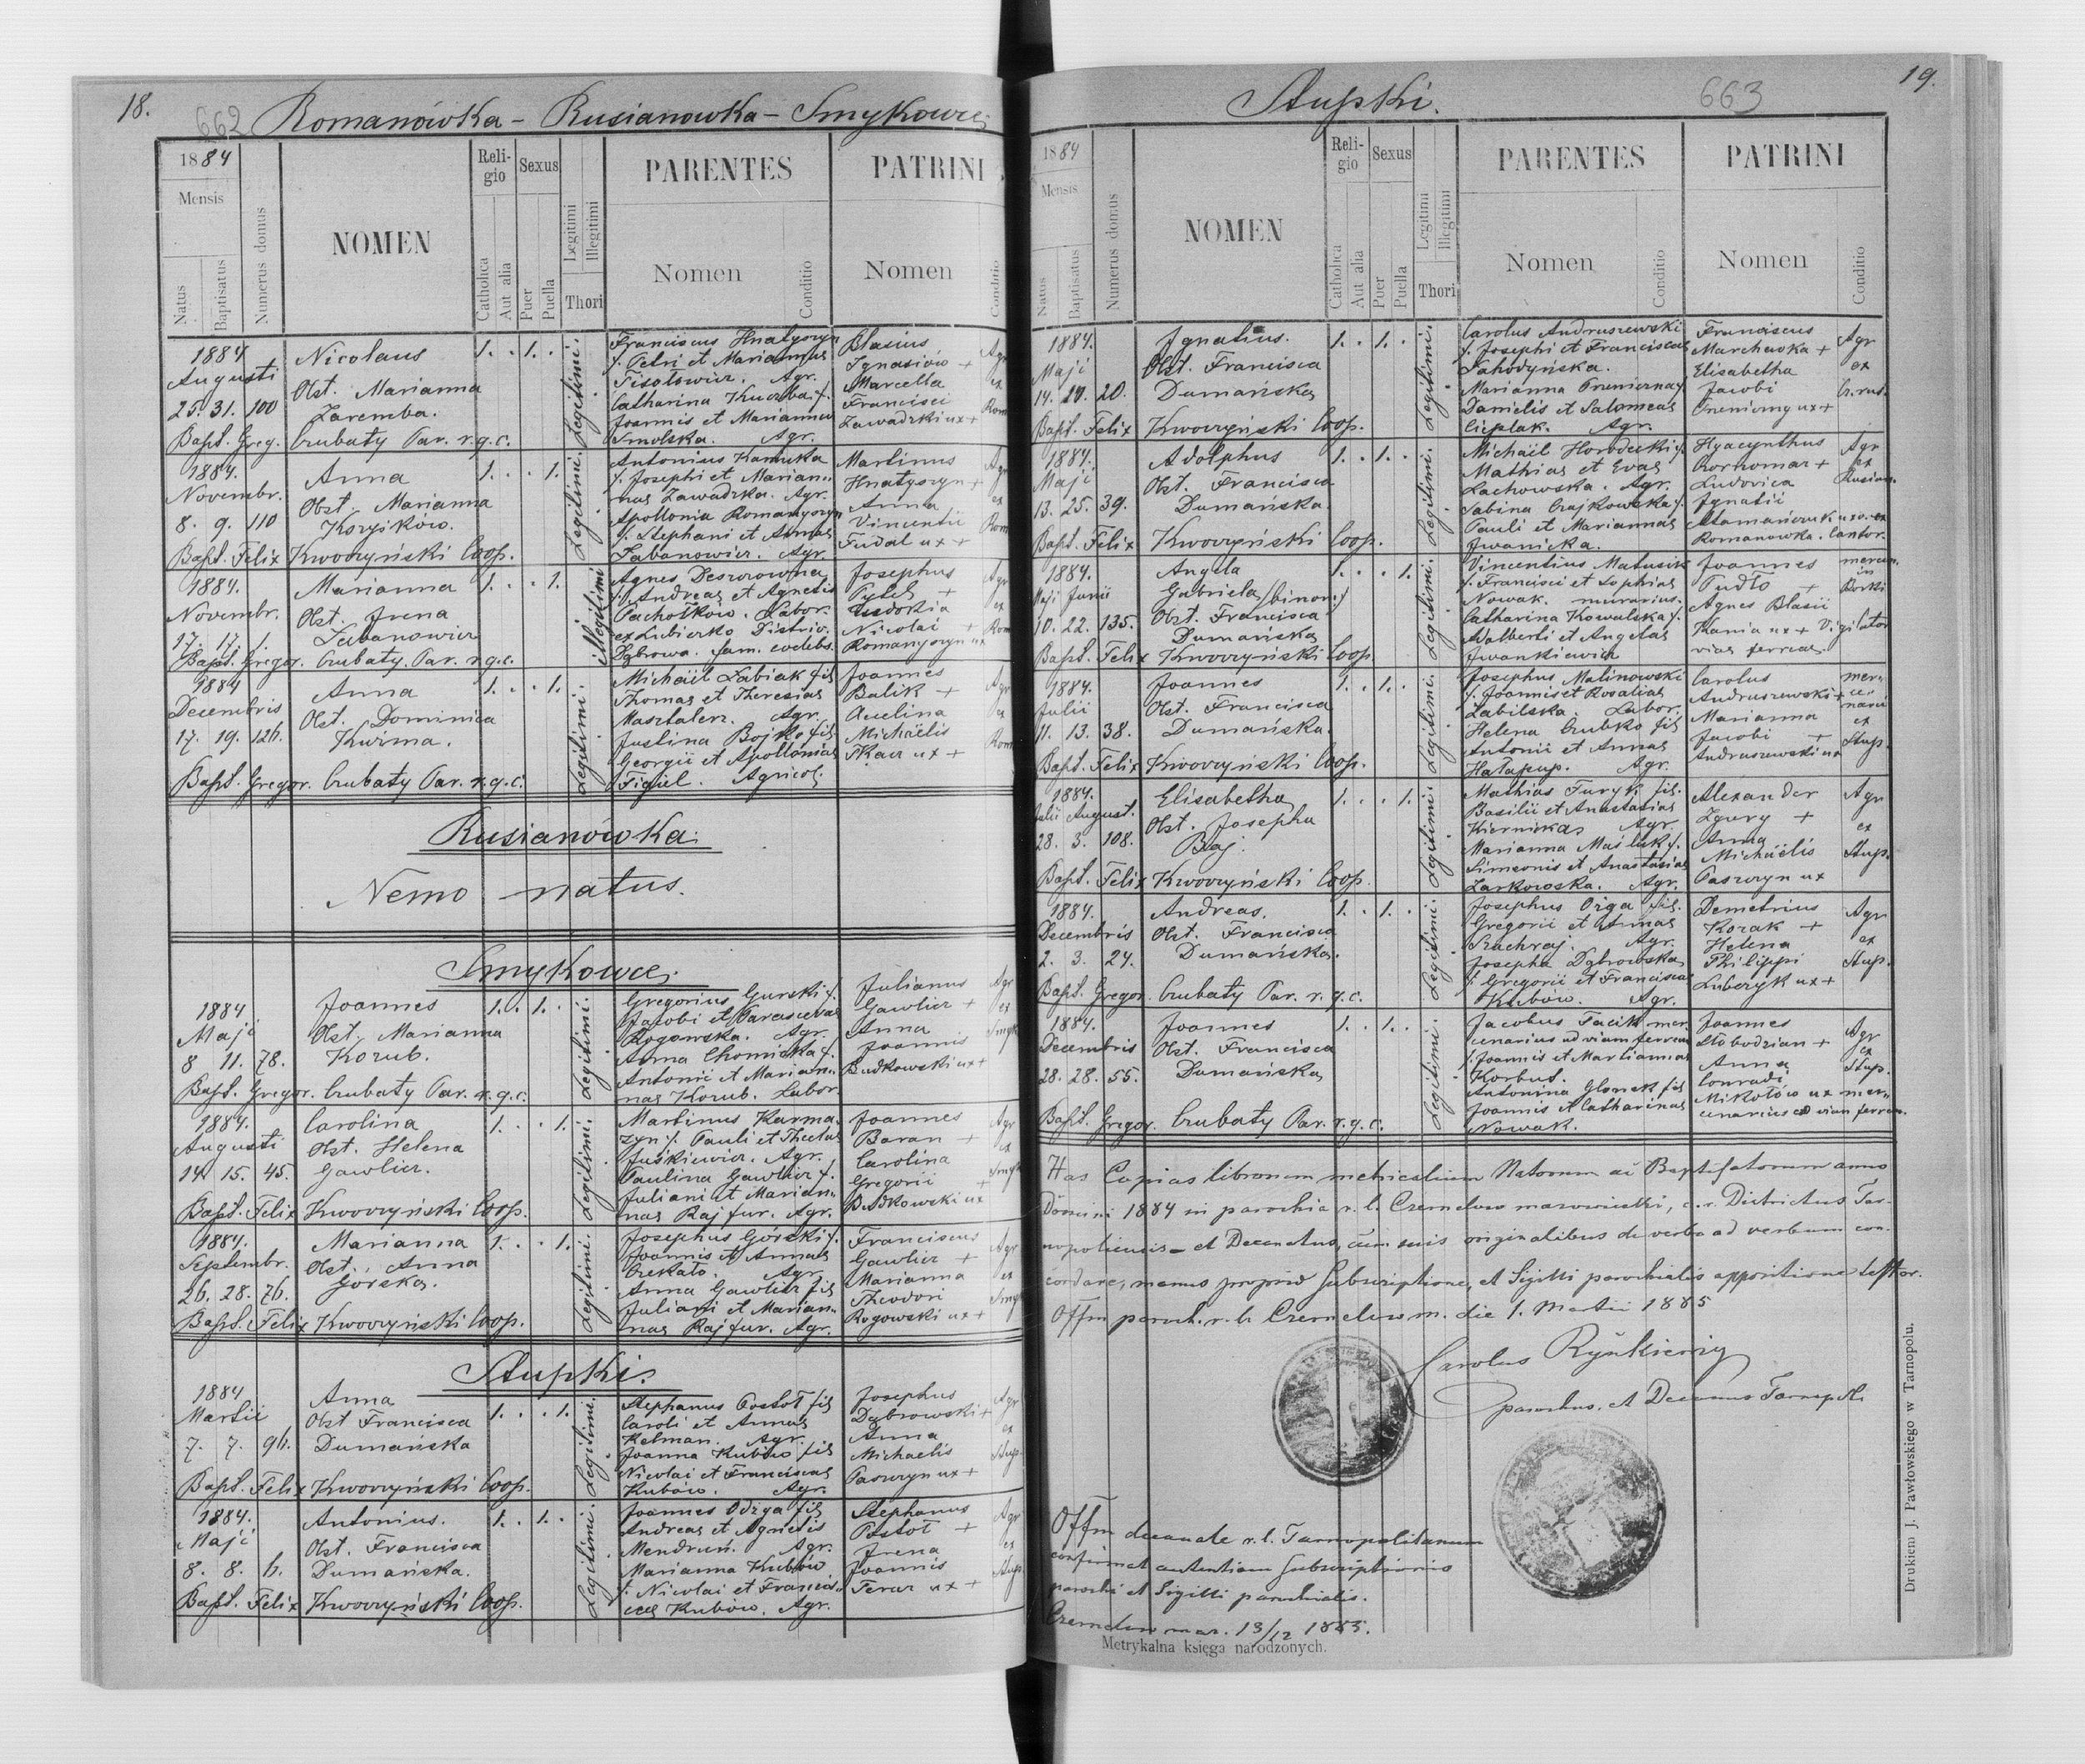 18.
662 Romanówka - Rusianowka - Smykowce
1884
Mensis
Natus
Baptisatus
Numerus domus
NOMEN
Religio
Catholica
Aut alia
Sexus
Puer
Puella
Legitimi
Illegitimi
Thori
PARENTES
Nomen
Conditio
PATRINI
Nomen
Conditio
1884
Augusti
25. 31. 100
Nicolaus
Obst. Marianna
Zaremba.
1. . 1. .
Legitimi.
Franciscus Hnatyszyn
f. Petri et Mariannae
Agr.
Catharina Kuczba f.
Joannis et Mariannae
Smolska. Agr.
Blasius
Ignasiów +
Marcella
Francisci
Zawadzki ux +
Bapt. Greg. Czubaty Par. r.g.c.
1884.
Novembr.
8. 9. 110
Anna
Obst. Marianna
Korzików.
1. . . 1.
Legitimi.
Antonius Kamuka
f. Josephi et Marian-
nae Zawadzka. Agr.
Apollonia Romanyszyn
f. Stephani et Annae
Łabanowicz. Agr.
Martinus
Hnatyszyn +
Anna
Vincentii
Fudal ux +
Bapt. Felix Kwoczyński Coop.
1884.
Novembr.
17. 17. 1.
Marianna
Obst. Irena
Łabanowicz
1. . . 1.
Illegitimi
Agnes
f. Andreae et Agnetis
Pachołków. Labor.
Dąbrowa. fam. coelebs.
Josephus
Pytel +
Nicolai +
Romanyszyn ux
Bapt. Gregor. Czubaty. Par. r.g.c.
1884
Decembris
17. 19. 126.
Anna
Obst. Dominica
Kuźma.
1. . . 1.
Legitimi.
Michäil Labiak fil
Thomae et Theresiae
Masztalerz. Agr.
Justina Bojko fil
Georgii et Apolloniae
Figiel. Agricol.
Joannes
Balik +
Michaelis
Tkacz ux +
Bapt. Gregor. Czubaty Par. r.g.c.
Rusianówka.
Nemo natus.
Smykowce.
1884
Maji
8 11. 78.
Joannes
Obst. Marianna
Kozub.
1. . 1. .
Legitimi.
Gregorius Gurski f.
Jacobi et Parascevae
Rogowska. Agr.
Anna Chomicka f.
Antonii et Marian-
nae Kozub. Labor.
Julianus
Gawlicz +
Anna
Joannis
Budkowski ux +
Bapt. Gregor. Czubaty Par. r.g.c.
1884.
Augusti
14 15. 45.
Carolina
Obst. Helena
Gawlicz.
1. . . 1.
Legitimi.
Martinus Karma-
zyn f. Pauli et Theclae
Juśkiewicz. Agr.
Paulina Gawlicz f.
Juliani et Marian-
nae Rajfur. Agr.
Joannes
Baran +
Carolina
Gregorii +
Budkowski ux
Bapt. Felix Kwoczyński Coop.
1884.
Septembr.
26. 28. 76.
Marianna
Obst. Anna
Górska.
1. . . 1.
Legitimi.
Josephus Górski f.
Joannis et Annae
Czekało. Agr.
Anna Gawlicz fil
Juliani et Marian-
nae Rajfur. Agr.
Franciscus
Gawlicz +
Marianna
Theodori
Rogowski ux +
Bapt. Felix Kwoczyński Coop.
Stupki.
1884
Martii
7. 7. 96.
Anna
Obst Francisca
Dumańska
1. . . 1.
Legitimi.
Stephanus Postół fil
Caroli et Annae
Kelman. Agr.
Joanna Kubów fil
Nicolai et Franciscae
Kubów. Agr.
Josephus
Dąbrowski +
Anna
Michaelis
Paszczyn ux +
Bapt. Felix Kwoczyński Coop.
1884.
Maji
8. 8. 6.
Antonius.
Obst. Francisca
Dumańska.
1. . 1. .
Legitimi.
Joannes Odzga fil
Andreae et Agnetis
Mendruń. Agr.
Marianna Kubów
f. Nicolai et Francis-
cae Kubów. Agr.
Stephanus
Postół +
Irena
Joannis
Teraz ux +
Bapt. Felix Kwoczyński Coop.
Stupki.
663
19.
1884
Mensis
Natus
Baptisatus
Numerus domus
NOMEN
Religio
Catholica
Aut alia
Sexus
Puer
Puella
Legitimi
Illegitimi
Thori
PARENTES
Nomen
Conditio
PATRINI
Nomen
Conditio
1884.
Maji
20.
Ignatius.
Obst. Francisca
Dumańska
1. . 1. .
Legitimi.
Carolus Andruszewski
f. Josephi et Franciscae
Marianna
Danielis et Salomeae
Cieplak. Agr.
Franciscus
Marchewka +
Elisabetha
Jacobi
Agr
ex
Bapt. Felix Kwoczyński Coop.
1884.
Maji
13. 25. 39.
Adolphus
Obst. Francisca
Dumańska.
1. . 1. .
Legitimi.
Michäil Horodecki f.
Mathiae et Evae
Lachowska. Agr.
Sabina Czajkowska f.
Pauli et Mariannae
Iwanicka.
Hyacynthus
Ludovica
Ignatii
Romanowka. Cantor.
Agr
ex
Bapt. Felix Kwoczyński Coop.
1884.
Maji Junii
10. 22. 135.
Angela
Gabriela (binom.)
Obst. Francisca
Dumańska
1. . . 1.
Legitimi.
Vincentius Matusik
f. Francisci et Sophiae
Nowak. murarius.
Catharina Kowalska f.
Adalberti et Angelae
Iwankiewicz
Joannes
Pudło +
Agnes Blasii
Kania ux + Vigilator
viae ferreae
in
Borki
Bapt. Felix Kwoczyński Coop.
1884.
Julii
11. 13. 38.
Joannes
Obst. Francisca
Dumańska.
1. . 1. .
Legitimi.
Josephus Malinowski
f. Joannis et Rosaliae
Labilska. Labor.
Helena Czubko fil
Antonii et Annae
Hałapup. Agr.
Carolus
Andruszewski +
Marianna
Jacobi +
Andruszewski ux
mer-
ce-
narii
ex
Stup.
Bapt. Felix Kwoczyński Coop.
1884.
Julii August.
28. 3. 108.
Elisabetha
Obst. Josepha
Baj.
1. . . 1.
Legitimi.
Mathias Turyk fil.
Basilii et Anastasiae
Kiernicka Agr.
Marianna Maślak f.
Simeonis et Anastasiae
Żarkowska. Agr.
Alexander
Zgury +
Anna
Michäelis
Paszczyn ux
Agr
ex
Stup.
Bapt. Felix Kwoczyński Coop.
1884.
Decembris
2. 3. 24.
Andreas.
Obst. Francisca
Dumańska.
1. . 1. .
Legitimi.
Josephus Oźga fil.
Gregorii et Annae
Szachraj. Agr.
Josepha Dąbrowska
f. Gregorii et Franciscae
Kubów. Agr.
Demetrius
Kozak +
Helena
Philippi
Luberyk ux +
Agr
ex
Stup.
Bapt. Gregor. Czubaty Par. r.g.c.
1884.
Decembris
28. 28. 55.
Joannes
Obst. Francisca
Dumańska
1. . 1. .
Legitimi.
Jacobus Facik mer-
cenarius ad viam ferream
f. Joannis et Mariannae
Korbut.
Antonina Glonek fil
Joannis et Catharinae
Nowak.
Joannes
Słobodzian +
Anna
Conradi
Mikołów ux mer-
cenarius ad viam ferream.
Agr
ex
Stup.
Bapt. Gregor Czubaty Par. r.g.c.
Has Copias librorum metricalium Natorum ac Baptisatorum anno
Domini 1884 in parochia r. l. Czernelow mazowiecki, c. r. Districtus Tar-
nopoliensis et Decanatus, cum suis originalibus de verbo ad verbum con-
cordare, manus propria subscriptione, et Sigilli parochialis appositione testor.
Offm paroch. r. l. Czernelow m. die 1. Martii 1885
Carolus
parochus et Decanus Tarnopol.
Offm decanale r. l. Tarnopolitanum
confirmat autentiam subscriptionis
parochi et Sigilli parochialis.
Czernelow maz. 13/12 1885.
Metrykalna księga narodzonych.
Drukiem J. Pawłowskiego w Tarnopolu.